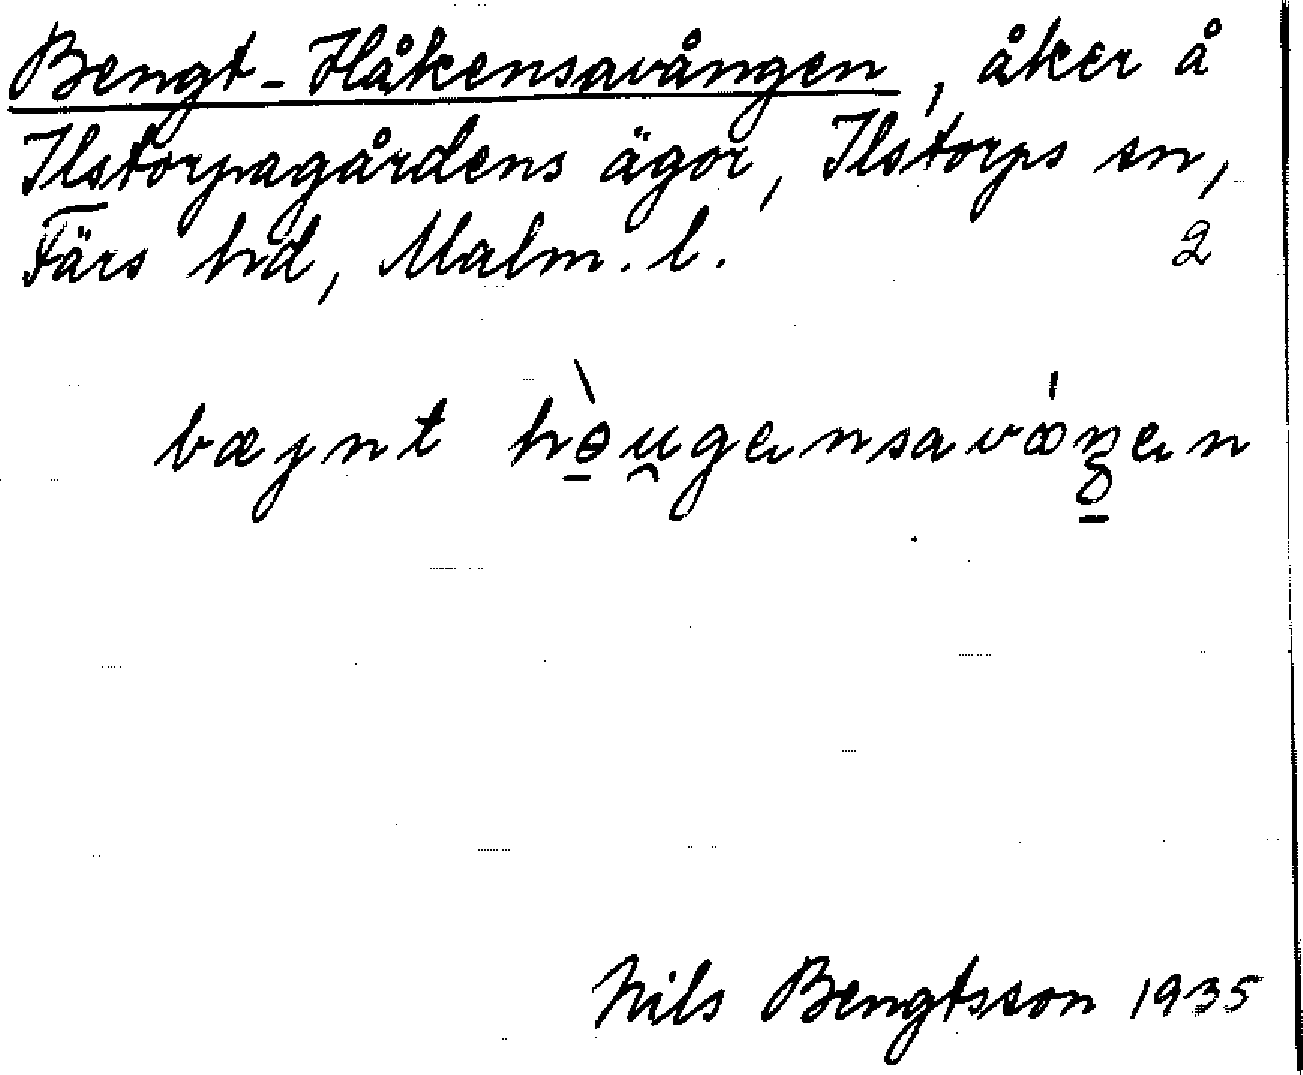 Bengt-Håkensavången, åker å
Ilstorpagårdens ägor, Ilstorps sn,
Färs hd, Malm. l. 2
bæȷnt hə̀u̯gensavάŋen
Nils Bengtsson 1935